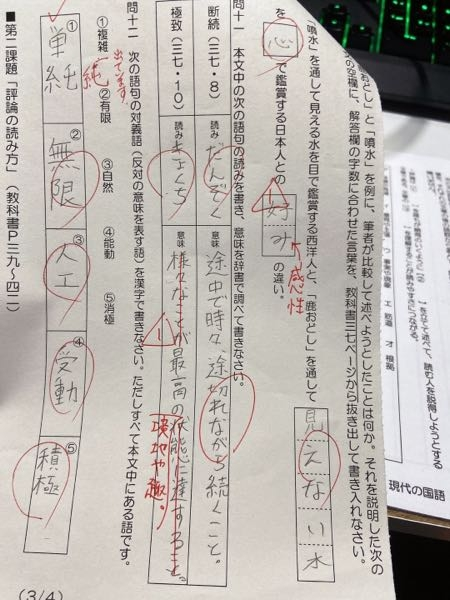 鹿おとし」と「噴水」を例に、筆者が比較して述べようとしたことは何か。それを説明した次の
の空欄に、解答欄の字数に合わせた言葉を、教科書三七ページから抜き出して書き入れなさい。
「噴水」を通して見える水を目で鑑賞する西洋人と、「鹿おどし」を通して
見えない水
を
心
で鑑賞する日本人との
好み
の違い。
感性
問十一 本文中の次の語句の読みを書き、意味を辞書で調べて書きなさい。
断続(三七・8)
読み
だんぞく
意味
途中で時々途切れながら続くこと。
極致(三七・10)
読み
きょくち
意味
様々なことが最高の状態に達すること。
境地や趣。
問十二 次の語句の対義語(反対の意味を表す語)を漢字で書きなさい。ただしすべて本文中にある語です。
①複雑 ②有限 ③自然 ④能動 ⑤消極
出ています
純
① 単純
② 無限
③ 人工
④ 受動
⑤ 積極
■第二課題「評論の読み方」(教科書P三九~四二)
(3/4)
現代の国語
】を立てて述べて、読む人を説得しようとする
エ 筋道 オ 根拠